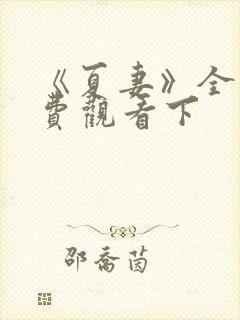 《夏妻》全
費觀看下
邵喬茵